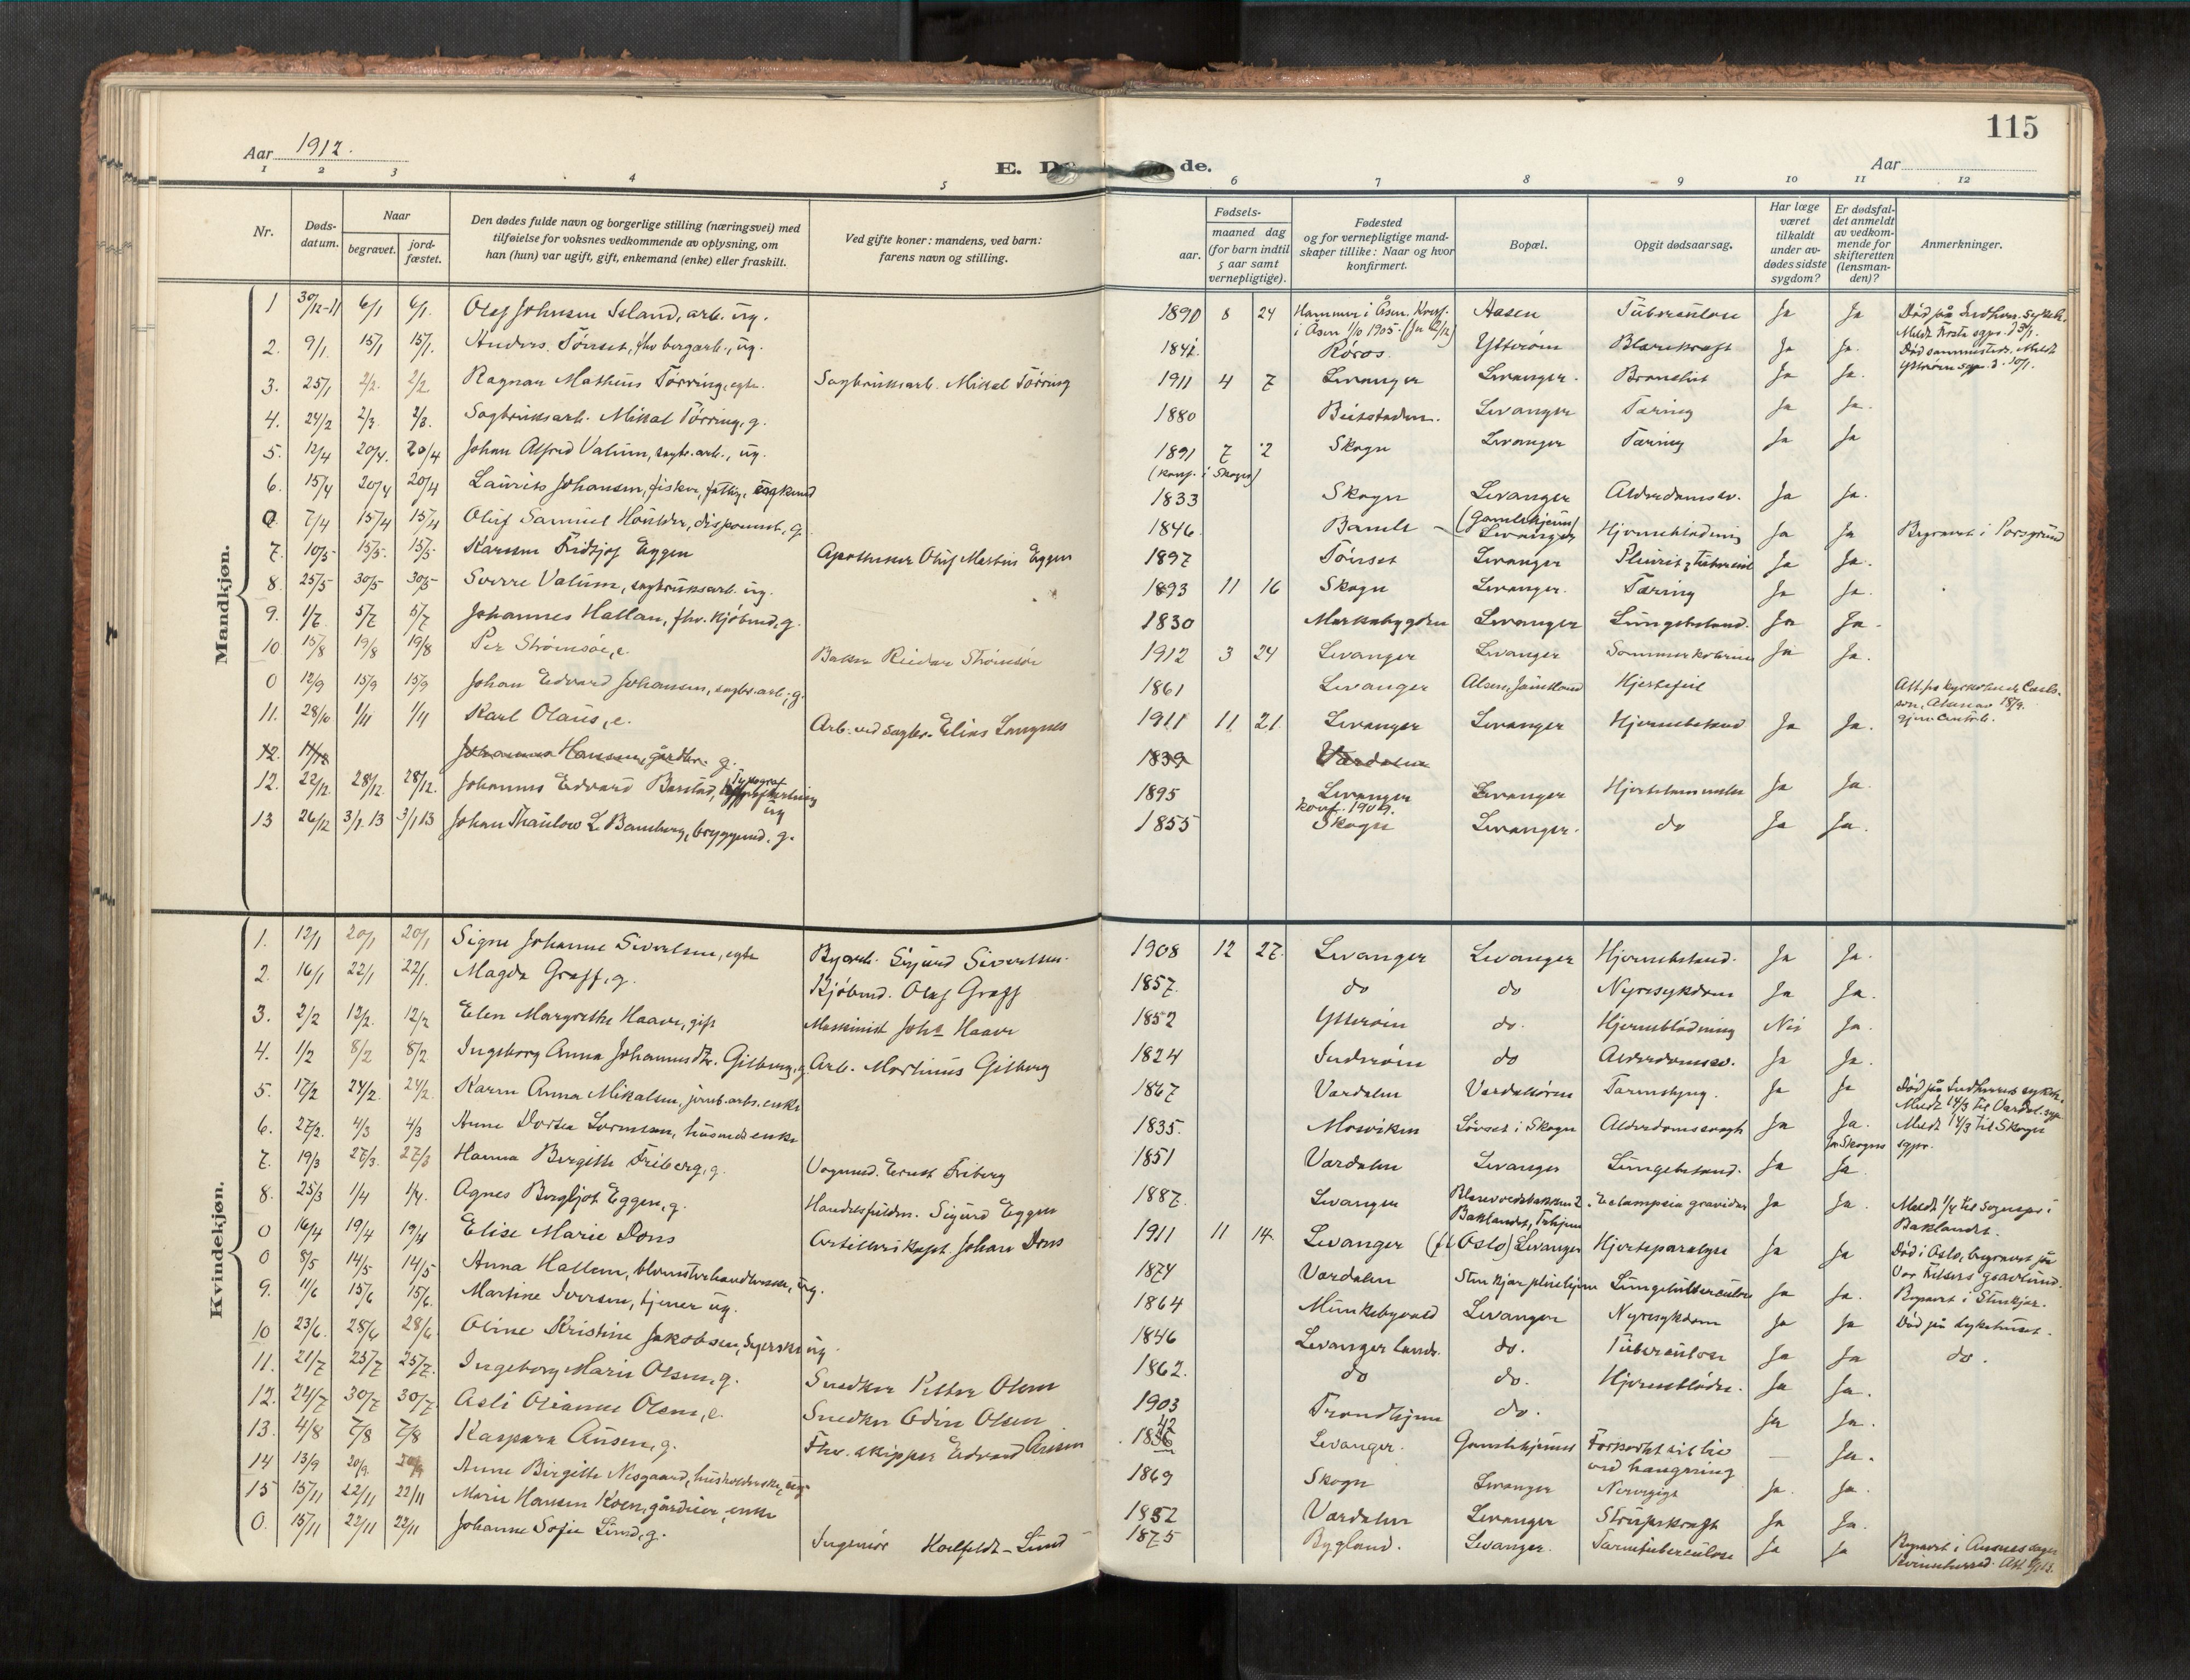 115
Aar 1912.
Aar
E. D de.
1 2 3 4 5 6 7 8 9 10 11 12
Nr.
Døds-datum.
Naar
begravet.
jord-fæstet.
Den dødes fulde navn og borgerlige stilling (næringsvei) med
tilføielse for voksnes vedkommende av oplysning, om
han (hun) var ugift, gift, enkemand (enke) eller fraskilt.
Ved gifte koner: mandens, ved barn:
farens navn og stilling.
Fødsels-
aar.
maaned dag
(for barn indtil
5 aar samt
vernepligtige).
Fødested
og for vernepligtige mand-
skaper tillike: Naar og hvor
konfirmert.
Bopæl.
Opgit dødsaarsag.
Har læge
været
tilkaldt
under av-
dødes sidste
sygdom?
Er dødsfal-
det anmeldt
av vedkom-
mende for
skifteretten
(lensman-
den)?
Anmerkninger.
Mandkjøn.
1 30/12-11 6/1 6/1. Olaf Johnsen Island, arb. ug. 1890 8 24 Hammer i Åsen. Konf. i Åsen 1/10 1905. Aasen Tuberculose Ja Ja
2. 9/1 15/1 15/1. Anders Tønset, fhv bergarb., ug. 1842 Røros Ytterøen Blærekræft Ja Ja.
3. 25/1 2/2. 2/2 Ragnar Matheus Tørring, egte. Sagbruksarb. Mikal Tørring 1911 4 7 Levanger Levanger. Bronchit Ja Ja.
4. 24/2 2/3 2/3. Sagbruksarb. Mikal Tørring, g. 1880 Beitstaden. Levanger Tæring Ja Ja.
5. 12/4 20/4. 20/4 Johan Alfred Valum, sagbr.arb., ug. 1891 7 2 (konf. i Skogn) Skogn Levanger Tæring Ja Ja
6. 15/4 20/4 20/4 Laurits Johansen, fisker, fattig, enkemd 1833 Skogn Levanger (Gamlehjem) Alderdomssv. Ja Ja.
0. 7/4 15/4 15/4 Oluf Samuel Houlder, disponent, g. 1846 Bamle Levanger Hjerneblødning Ja Ja Begravet i Porsgrund
7. 10/5 15/5. 15/5 Karsten Fridtjof Eggen Apotheker Oluf Martin Eggen 1897 Tønset Levanger Pleurit, tubercul Ja Ja.
8. 25/5 30/5 30/5 Sverre Valum, sagbruksarb. ug. 1893 11 16 Skogn Levanger. Tæring Ja Ja.
9. 1/7 5/7 5/7 Johannes Hallan, fhv. kjøbmd, g. 1830 Markabygden Levanger Lungebetænd. Ja Ja.
10 15/8 19/8 19/8 Per Strømsøe, e. Baker Reidar Strømsøe 1912 3 24 Levanger Levanger Sommerkolerine Ja Ja.
0 12/9 15/9 15/9 Johan Edvard Johansen, sagbr.arb., g. 1861 Levanger Alsen, Jämtland Hjertefeil
11. 28/10 1/11 1/11 Karl Olaus, e. Arb. ved sagbr. Elias Langnes 1911 11 21 Levanger Levanger Hjernebetænd Ja Ja.
12. Johannes Hansen, gårdbr. g. 1839 Værdalen
12. 22/12 28/12. 28/12. Johannes Edvard Barstad, Typograf ug 1895 Levanger konf. 1909. Levanger Hjertelammelse Ja Ja.
13 26/12 3/1 13 3/1 13 Johan Thaulow L Bamberg, bryggemd. g. 1855 Skogn Levanger. do Ja Ja.
Kvindekjøn.
1. 12/1 20/1 20/1 Signe Johanne Sivertsen, egte Byarb. Sigurd Sivertsen. 1908 12 27 Levanger Levanger Hjernebetænd. Ja Ja.
2. 16/1 22/1 22/1. Magda Graff, g. Kjøbmd. Olaf Graff 1857. do do Nyresykdom Ja Ja.
3. 2/2 12/2. 12/2 Elen Margrethe Haave, gift Maskinist Johs Haave 1852 Ytterøen do. Hjerneblødning Nei Ja.
4. 1/2 8/2 8/2 Ingeborg Anna Johannesdtr. Gilberg, g. Arb. Martinus Gilberg 1824 Inderøen do Alderdomssv. Ja Ja.
5. 17/2 24/2. 24/2. Karen Anna Mikalsen, jernb.arb. enke 1867 Værdalen Værdalsøren Tarmslyng. Ja Ja
6. 27/2. 4/3 4/3 Anne Dortea Lorentsen, husmds enke 1835. Mosviken Løvset i Skogn Alderdomssvagh Ja Ja. Meldt 14/3 til Skogn
7. 19/3 27/3. 27/3 Hanna Birgitte Friberg, g. Vognmd. Ernst Friberg 1851 Værdalen Levanger Lungebetænd. Ja Ja.
8. 25/3 1/4 1/4. Agnes Bergljot Eggen, g. Handelsfuldm. Sigurd Eggen 1887. Levanger Baklandet, Trhjem Eclampsia gravidar Ja Ja. Meldt 1/4 til sognepr i Baklandet.
0 16/4 19/4 19/4 Elise Marie Dons Artillerikapt. Johan Dons 1911 11 14. Levanger (Oslo) Levanger Hjerteparalyse Ja Ja Død i Oslo, begravet på Vor Frelsers gravlund.
0 8/5 14/5 14/5 Anna Hallem, blomsterhandlerske, ug. 1874 Værdalen Stenkjær pleiehjem Lungetuberculose Ja Ja. Begravet i Stenkjær.
9. 11/6 15/6 15/6. Martine Iversen, tjener ug. 1864 Munkebyvald Levanger Nyresykdom Ja Ja Død på Sykehuset.
10 23/6. 28/6 28/6 Oline Kristine Jakobsen, Syerske ug 1846 Levanger lands. do. Tuberculose Ja Ja do.
11. 21/7 25/7 25/7. Ingeborg Marie Olsen, g. Snedker Petter Olsen 1862. do do. Hjerneblødn. Ja Ja.
12. 24/7 30/7 30/7. Asli Oliane Olsen, e. Snedker Odin Olsen 1903 Trondhjem do. Ja Ja.
13. 4/8 7/8 7/8 Kaspara Ausen, g. Fhv. skipper Edvard Ausen Levanger. Gamlehjemmet Forkortet sit liv ved hængning — Ja.
14 13/9 20/9. 20/9 Anne Birgitte Nesgaard, husholderske, ug 1869 Skogn Levanger Nervegigt Ja. Ja.
15 15/11 22/11 22/11 Marie Hansen Koen, gårdeier, enke 1852 Værdalen Levanger Strupekræft Ja Ja.
0. 15/11 22/11 22/11 Johanne Sofie Lund, g. Ingeniør Hoelfeldt-Lund 1875 Bygland. Levanger. Tarmtuberculose Ja Ja